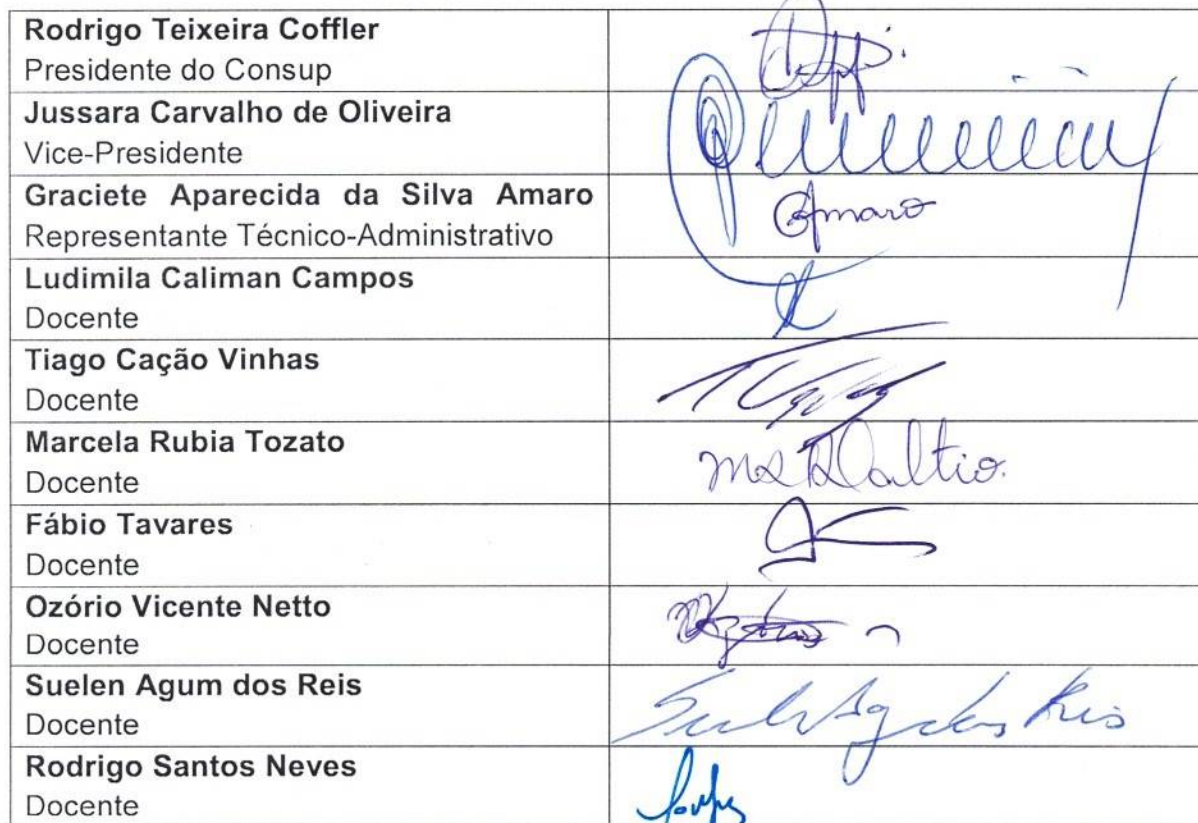 Rodrigo Teixeira Coffler
Presidente do Consup
Jussara Carvalho de Oliveira
Vice-Presidente
Graciete Aparecida da Silva Amaro
Representante Técnico-Administrativo
Amaro
Ludimila Caliman Campos
Docente
Tiago Cação Vinhas
Docente
Marcela Rubia Tozato
Docente
Fábio Tavares
Docente
Ozório Vicente Netto
Docente
Suelen Agum dos Reis
Docente
Rodrigo Santos Neves
Docente